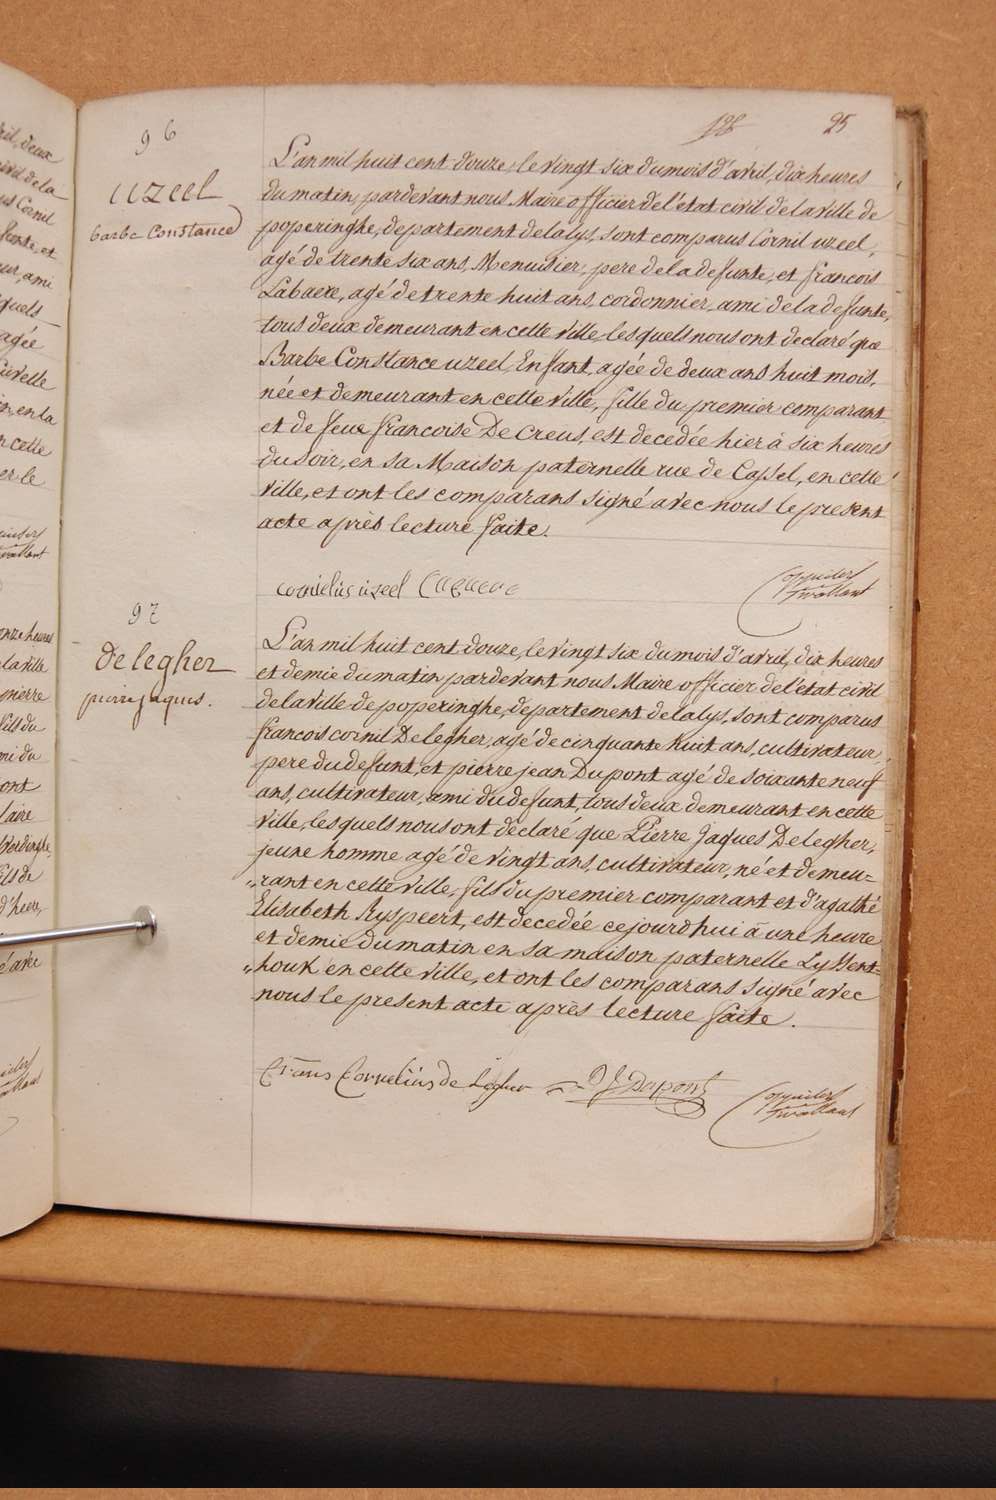 25
96
uzeel
barbe Constance
L'an mil huit cent douze, le vingt six du mois d'avril, dix heures
du matin, pardevant nous Maire officier de l'état civil de la ville de
poperinghe, departement de la lys, sont comparus Cornil uzeel,
agé de trente six ans, Menuisier, pere de la defunte, et françois
Labaere, agé de trente huit ans, cordonnier, ami de la defunte,
tous deux demeurant en cette ville, lesquels nous ont declaré que
Barbe Constance uzeel, Enfant, agée de deux ans huit mois,
née et demeurant en cette ville, fille du premier comparant
et de feue francoise De Creus, est decedée hier à six heures
du soir, en sa Maison paternelle rue de Cassel, en cette
ville, et ont les comparans signé avec nous le present
acte après lecture faite.
cornielius uzeel
97
delegher
pierre jaques.
L'an mil huit cent douze, le vingt six du mois d'avril, dix heures
et demie du matin pardevant nous Maire officier de l'état civil
de la ville de poperinghe, departement de la lys, sont comparus
françois cornil Delegher, agé de cinquante huit ans, cultivateur,
pere du defunt, et pierre jean Dupont agé de soixante neuf
ans, cultivateur, ami du defunt, tous deux demeurant en cette
ville, lesquels nous ont declaré que Pierre Jaques Delegher,
jeune homme agé de vingt ans, cultivateur, né et demeu=
"rant en cette ville, fils du premier comparant et d'agathe
Elisabeth Ryspeert, est decedée cejourd'hui à une heure
et demie du matin en sa maison paternelle Lyssent=
"houk en cette ville, et ont les comparans signé avec
nous le present acte après lecture faite.
Cornelius de Legher P J Dupont